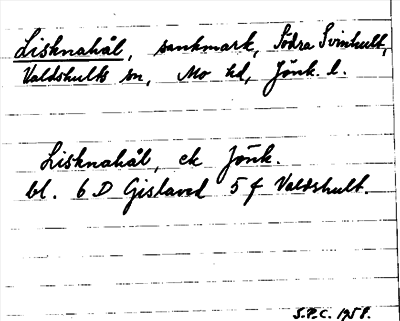 Lisknahål, sankmark, Södra Svinhult,
Valdshults sn, Mo hd, Jönk. l.
Lisknahål, ek Jönk.
bl. 6 D Gislaved 5 f Valdshult.
S.P.C. 1958.